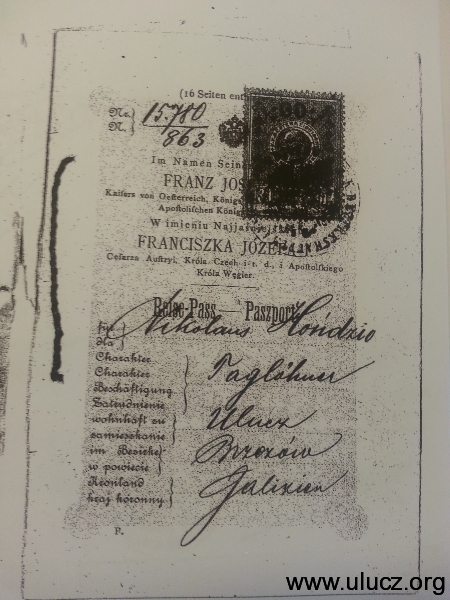 (16 Seiten ent
No.
N.
15.780
863
Im Namen Seine
FRANZ JOS
Kaisers von Oesterreich, Königs
Apostolischen König
W imieniu Najjaśniejs
FRANCISZKA JÓZEFA
Cesarza Austryi, Króla Czech i t. d., i Apostolskiego
Króla Węgier.
Reise-Pass — Paszport
für
dla
Nikolaus Hońdzio
Charakter
Charakter
Beschäftigung
Zatrudnienie
Taglöhner
wohnhaft zu
zamieszkanie
Ulucz
im Bezirke
w powiecie
Brzozów
Kronland
kraj koronny
Galizien
P.
www.ulucz.org